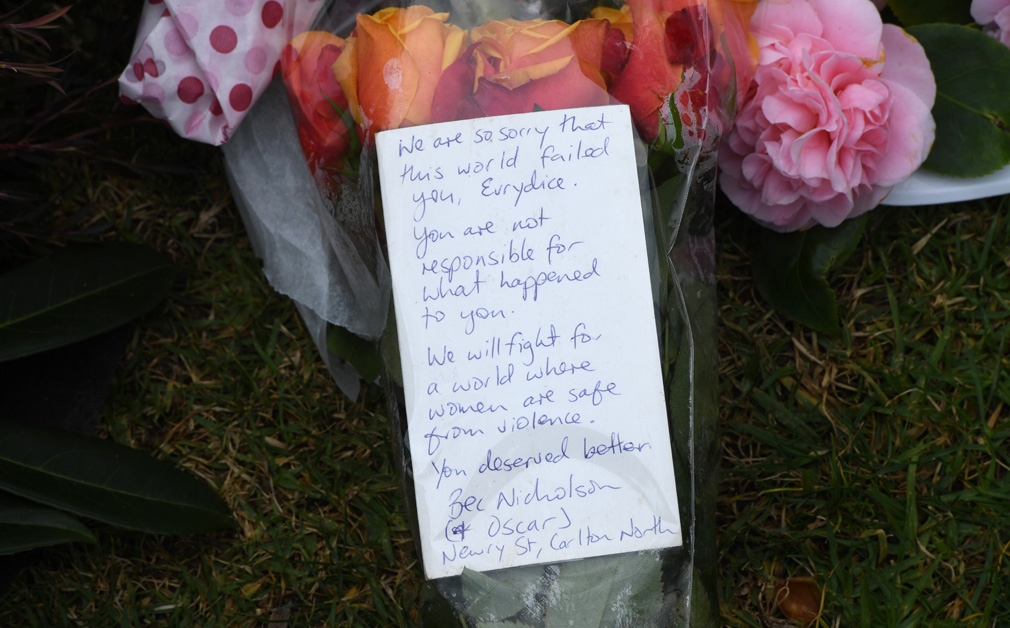 We are so sorry that
this world failed
you, Eurydice.
You are not
responsible for
what happened
to you.
We will fight for
a world where
women are safe
from violence.
You deserved better.
Bec Nicholson
(+ Oscar)
Newry St, Carlton North